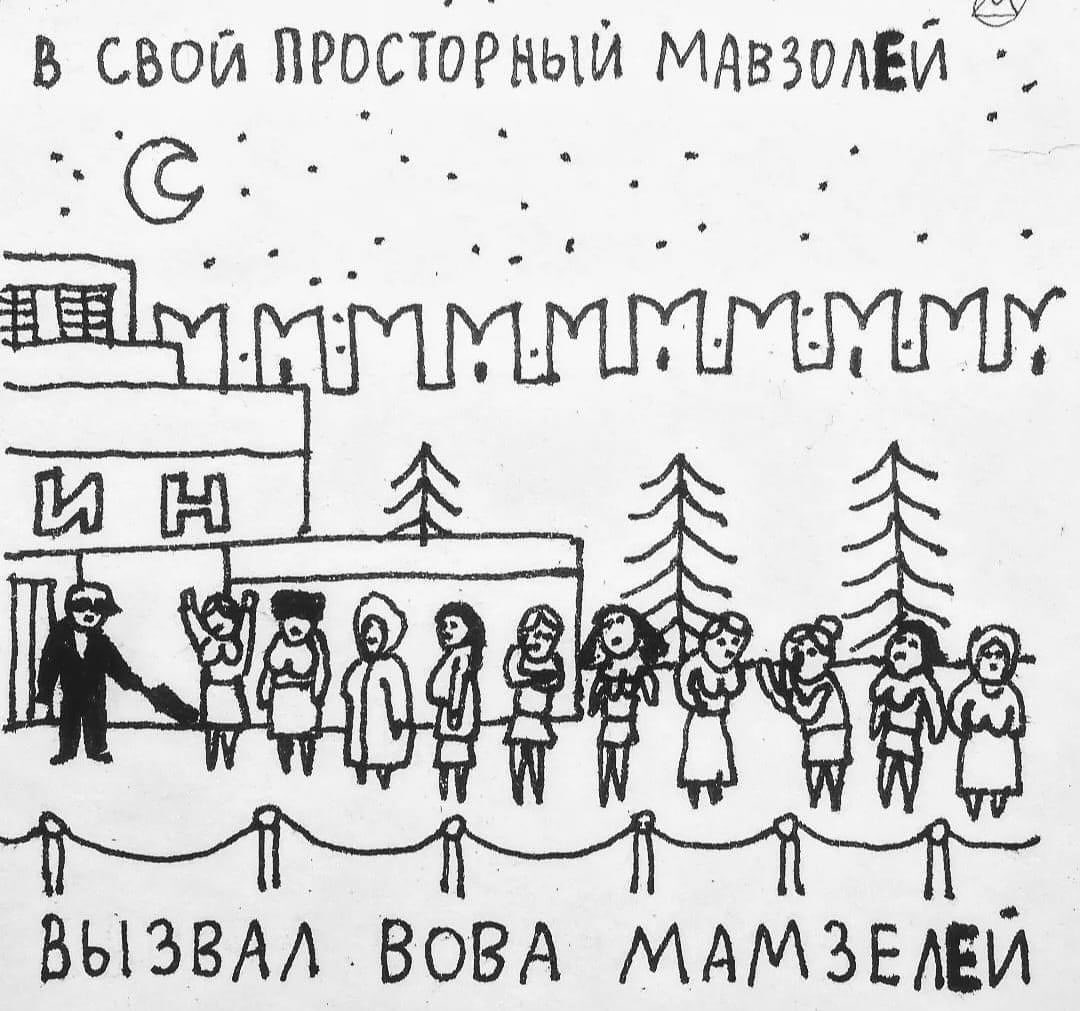 В СВОЙ ПРОСТОРНЫЙ МАВЗОЛЕЙ
ИН
ВЫЗВАЛ ВОВА МАМЗЕЛЕЙ